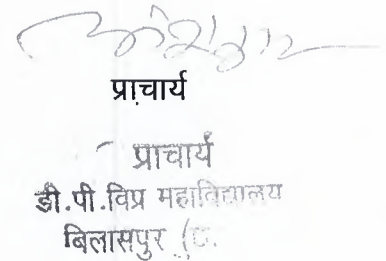 प्राचार्य
प्राचार्य
डी.पी.विप्र महाविद्यालय
बिलासपुर